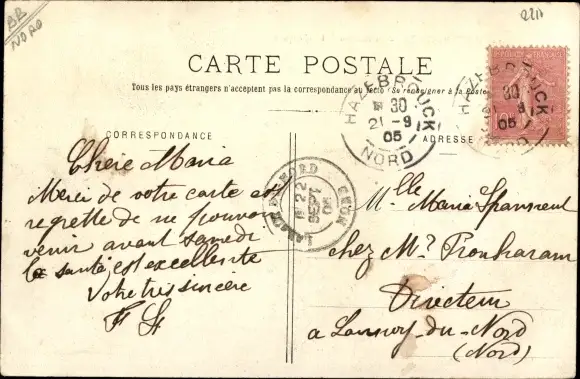 BB
NORD
CARTE POSTALE
Tous les pays étrangers n'acceptent pas la correspondance au recto (Se renseigner à la Poste)
CORRESPONDANCE
ADRESSE
HAZEBROUCK
30
21-9
05
NORD
HAZEBROUCK
30
9
05
22
SEPT
05
NORD
Chère Maria
Merci de votre carte et
regrette de ne pouvoir
venir avant samedi
la santé est excellente
Votre très sincère
Mlle Maria
chez Mr
Directeur
a Lannoy-du-Nord
(Nord)